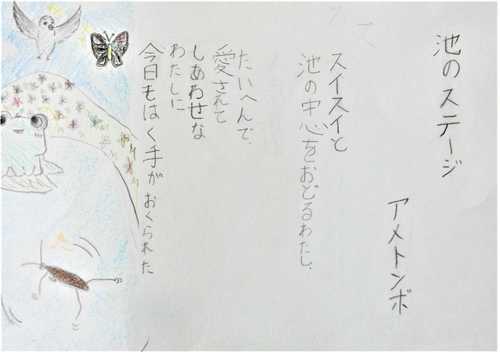 池のステージ
アメトンボ
スイスイと
池の中心をおどるわたし、
たいへんで、
愛されて
しあわせな
わたしに
今日もはく手がおくられた